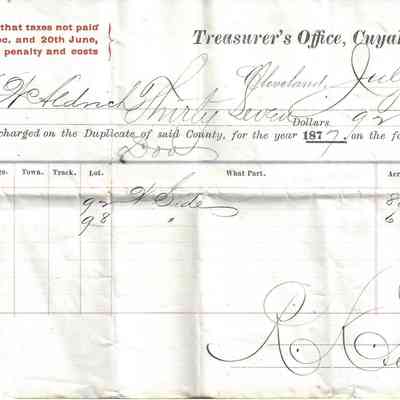 that taxes not paid
ec. and 20th June,
penalty and costs
Treasurer's Office, Cuya
Cleveland, Jul
W Aldrich Thirty Seven Dollars 92
charged on the Duplicate of said County, for the year 1877, on the fo
Town. Track. Lot. What Part. Acr
92 W Side 8
98 " 6
R.